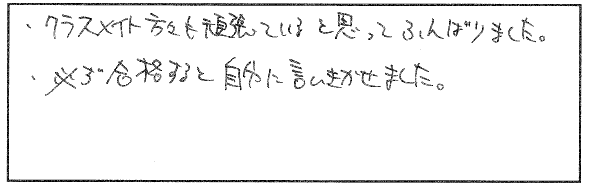 ・クラスメイト方々も頑張っていると思ってふんばりました。
・必ず合格すると自分に言いきかせました。